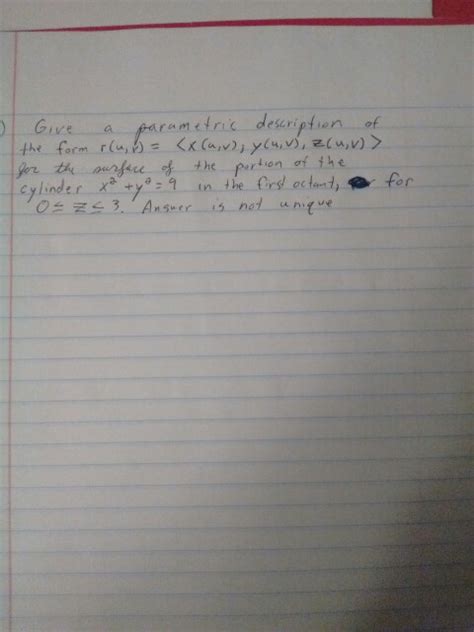 ) Give a parametric description of
the form r(u,v) = <x(u,v), y(u,v), z(u,v)>
for the surface of the portion of the
cylinder x² + y² = 9 in the first octant, for
0 ≤ z ≤ 3. Answer is not unique